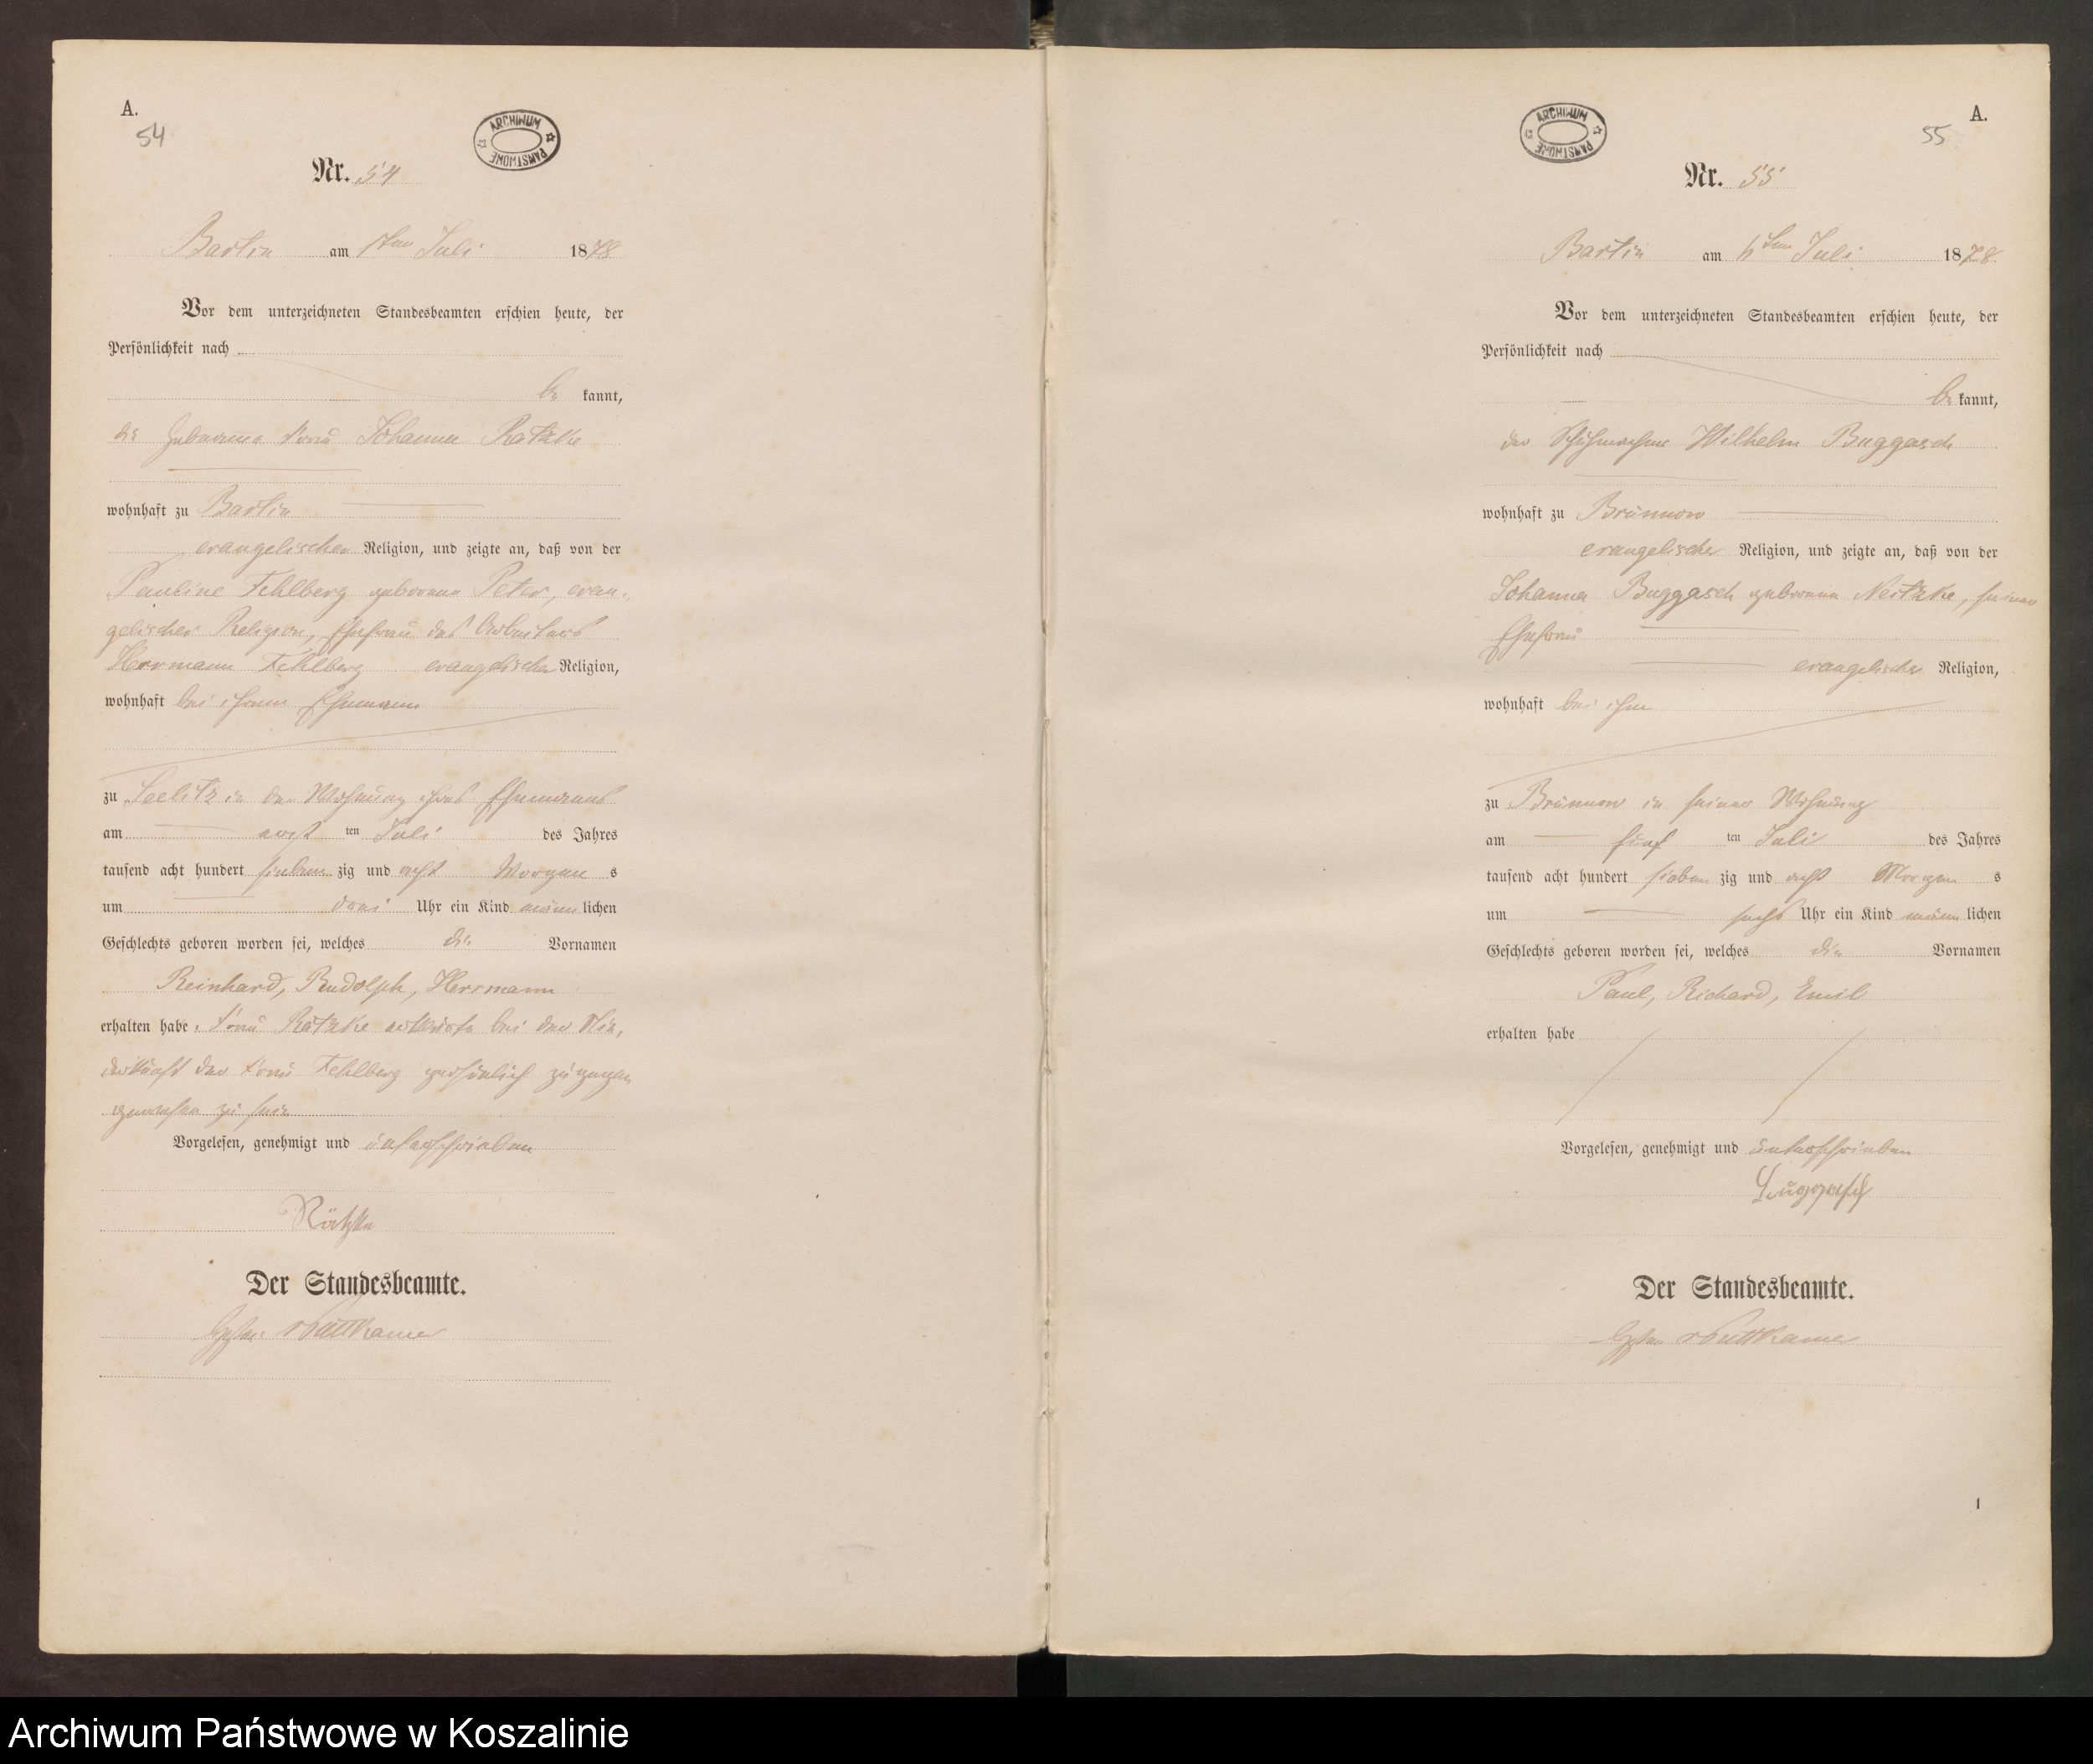 A.
54
ARCHIWUM PAŃSTWOWE
Nr. 54
Bartin am 1ten Juli 1878
Vor dem unterzeichneten Standesbeamten erschien heute, der
Persönlichkeit nach
be kannt,
die Hebamme Frau Johanna Rätzke
wohnhaft zu Bartin
evangelischer Religion, und zeigte an, daß von der
Pauline Fehlberg geborene Peter, evan-
gelischer Religion, Ehefrau des Arbeiters
Herrmann Fehlberg evangelischer Religion,
wohnhaft bei ihrem Ehemann
zu Seelitz in der Wohnung ihres Ehemanns
am erst ten Juli des Jahres
tausend acht hundert sieben zig und acht Morgen s
um drei Uhr ein Kind männ lichen
Geschlechts geboren worden sei, welches die Vornamen
Reinhard, Rudolph, Herrmann
erhalten habe. Frau Rätzke erklärte bei der Nie-
derkunft der Frau Fehlberg persönlich zugegen
gewesen zu sein
Vorgelesen, genehmigt und unterschrieben
Rätzke
Der Standesbeamte.
Puttkamer
A.
55
ARCHIWUM PAŃSTWOWE
Nr. 55
Bartin am 6ten Juli 1878
Vor dem unterzeichneten Standesbeamten erschien heute, der
Persönlichkeit nach
be kannt,
der Wilhelm Buggasch
wohnhaft zu Brünnow
evangelischer Religion, und zeigte an, daß von der
Johanna Buggasch geborene Neitzke, seiner
Ehefrau
evangelischer Religion,
wohnhaft bei ihm
zu Brünnow in seiner Wohnung
am fünf ten Juli des Jahres
tausend acht hundert sieben zig und acht Morgen s
um sechs Uhr ein Kind männ lichen
Geschlechts geboren worden sei, welches die Vornamen
Paul, Richard, Emil
erhalten habe
Vorgelesen, genehmigt und unterschrieben
Buggasch
Der Standesbeamte.
Puttkamer
1
Archiwum Państwowe w Koszalinie